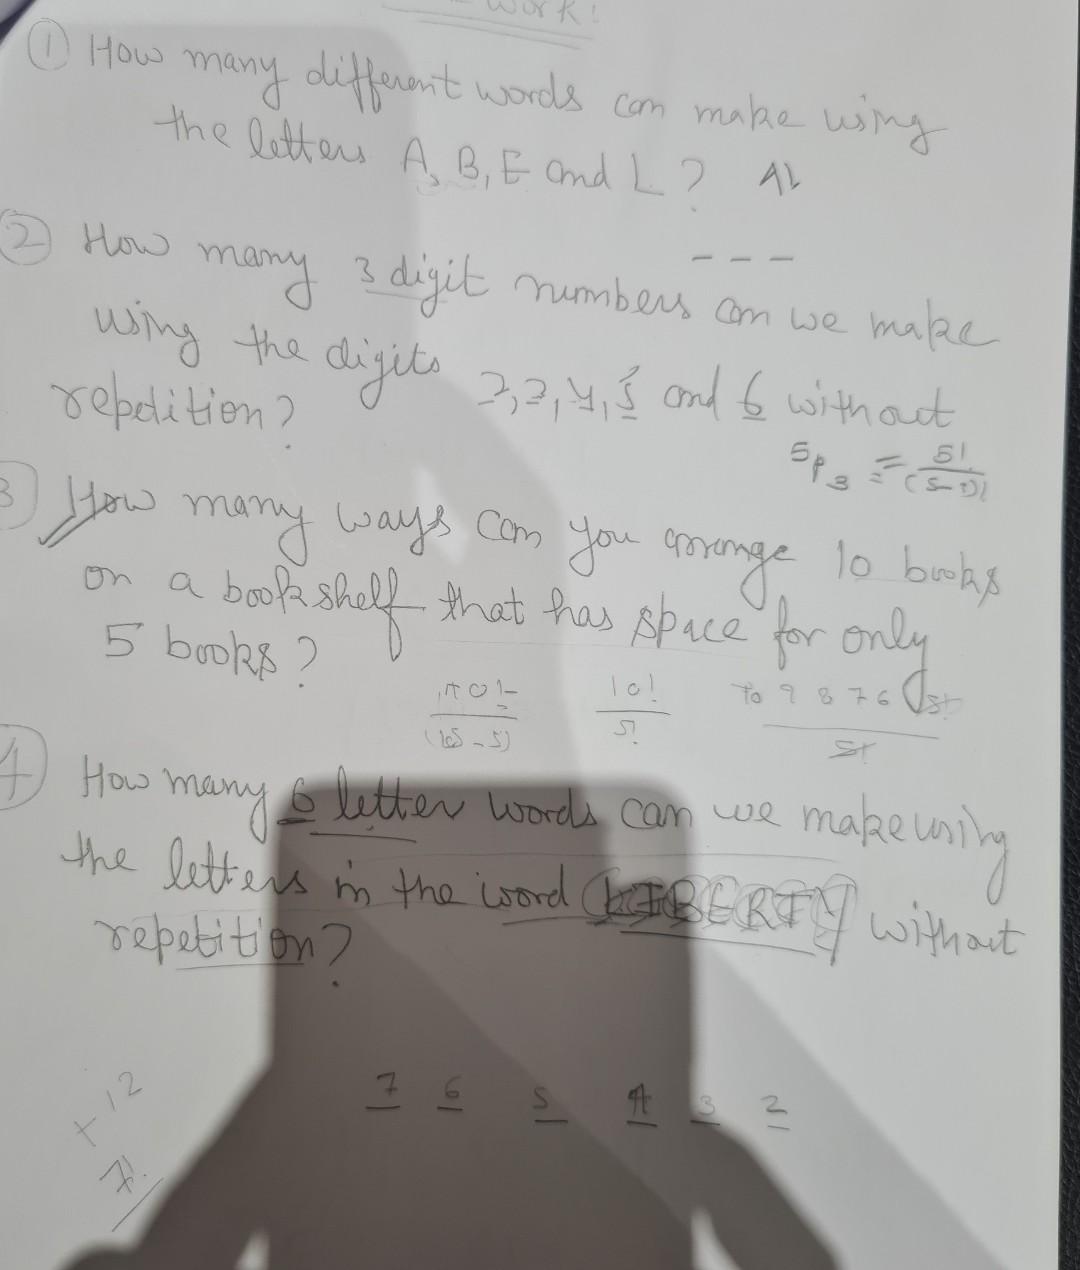 work!
① How many different words can make using
the letters A, B, E and L?
② How many 3 digit numbers can we make
using the digits 2, 3, 4, 5 and 6 without
repetition?
5P3 =
3 How many ways can you arrange 10 books
on a bookshelf that has space for only
5 books?
10!
5!
9 8 7 6 5!
5!
4 How many 6 letter words can we make using
the letters in the word LIBERTY without
repetition?
7 6 5 4 3 2
12